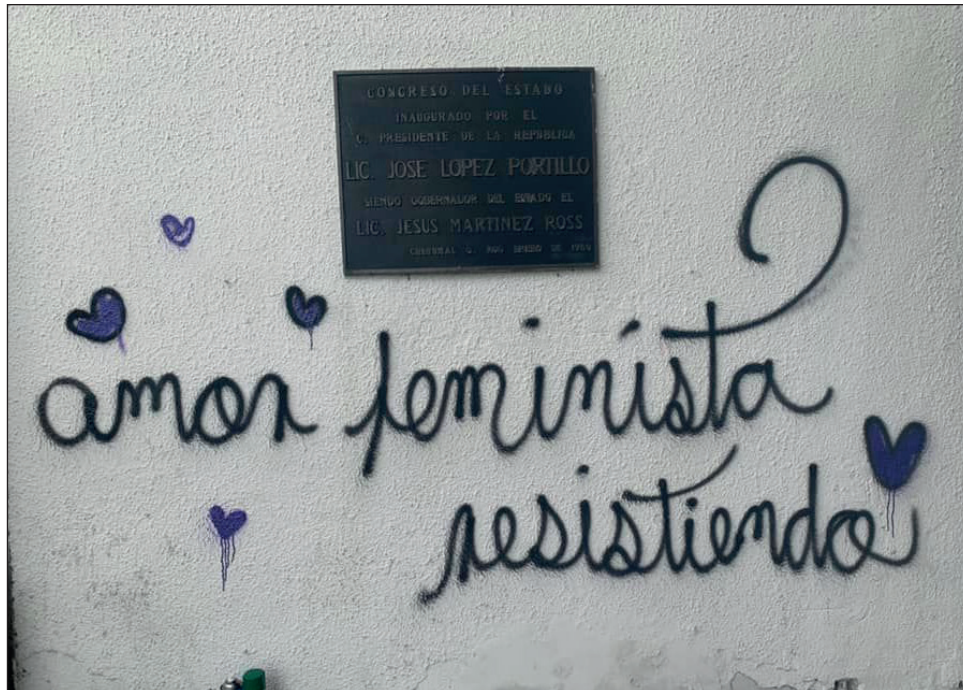 CONGRESO DEL ESTADO
INAUGURADO POR EL
C. PRESIDENTE DE LA REPUBLICA
LIC. JOSE LOPEZ PORTILLO
SIENDO GOBERNADOR DEL ESTADO EL
LIC. JESUS MARTINEZ ROSS
CHETUMAL Q. ROO ENERO DE
amor feminista
resistiendo